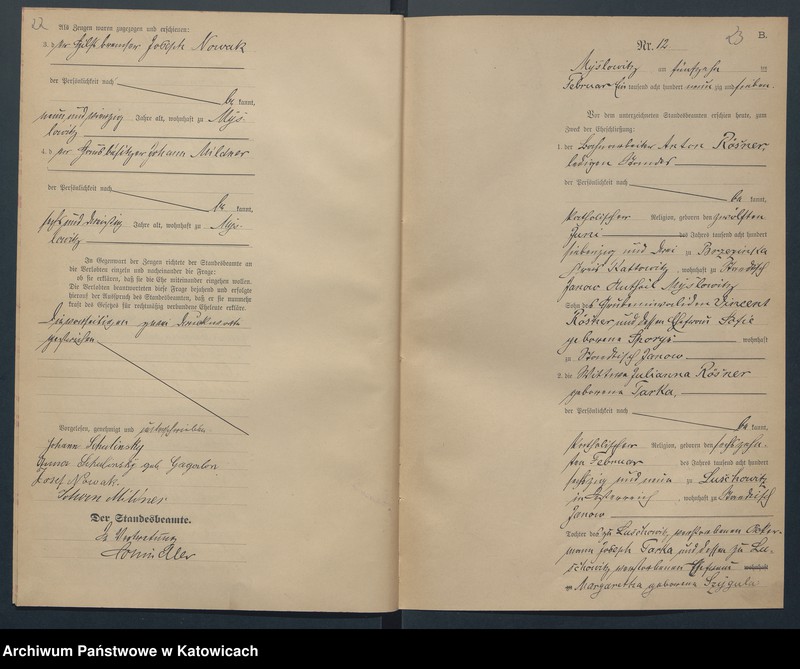 22
Als Zeugen waren zugezogen und erschienen:
3. der Hilfsbremser Joseph Nowak
der Persönlichkeit nach
be kannt,
neun und vierzig Jahre alt, wohnhaft zu Mys-
lowitz
4. der Hausbesitzer Johann Mildner
der Persönlichkeit nach
be kannt,
sechs und dreissig Jahre alt, wohnhaft zu Mys-
lowitz
In Gegenwart der Zeugen richtete der Standesbeamte an
die Verlobten einzeln und nacheinander die Frage:
ob sie erklären, daß sie die Ehe miteinander eingehen wollen.
Die Verlobten beantworteten diese Frage bejahend und erfolgte
hierauf der Ausspruch des Standesbeamten, daß er sie nunmehr
kraft des Gesetzes für rechtmäßig verbundene Eheleute erkläre.
gestrichen
Vorgelesen, genehmigt und unterschrieben
Johann Schulinsky
Schulinsky geb.
Josef Nowak
Mildner
Der Standesbeamte.
In Vertretung
23
B.
Nr. 12
Myslowitz am fünfzehn ten
Februar Ein tausend acht hundert neun zig und sieben.
Vor dem unterzeichneten Standesbeamten erschien heute, zum
Zweck der Eheschließung:
1. der Bahnarbeiter Anton Rösner,
ledigen Standes
der Persönlichkeit nach
be kannt,
katholischer Religion, geboren den zwölften
Juni des Jahres tausend acht hundert
siebenzig und drei zu Brzezinka
Kreis Kattowitz, wohnhaft zu Städtisch
Janow Antheil Myslowitz
Sohn des Grubeninvaliden Vincent
Rösner und dessen Ehefrau Sofie
geborene wohnhaft
zu Städtisch Janow
2. die Wittwe Julianna Rösner
geborene Tarka,
der Persönlichkeit nach
be kannt,
katholischer Religion, geboren den sechszehn-
ten Februar des Jahres tausend acht hundert
sechszig und neun zu Luschowitz
in Österreich, wohnhaft zu Städtisch
Janow
Tochter des zu Luschowitz verstorbenen Acker-
mann Joseph Tarka und dessen zu Lu-
schowitz verstorbenen Ehefrau wohnhaft
zu Margaretha geborene Szygula
Archiwum Państwowe w Katowicach